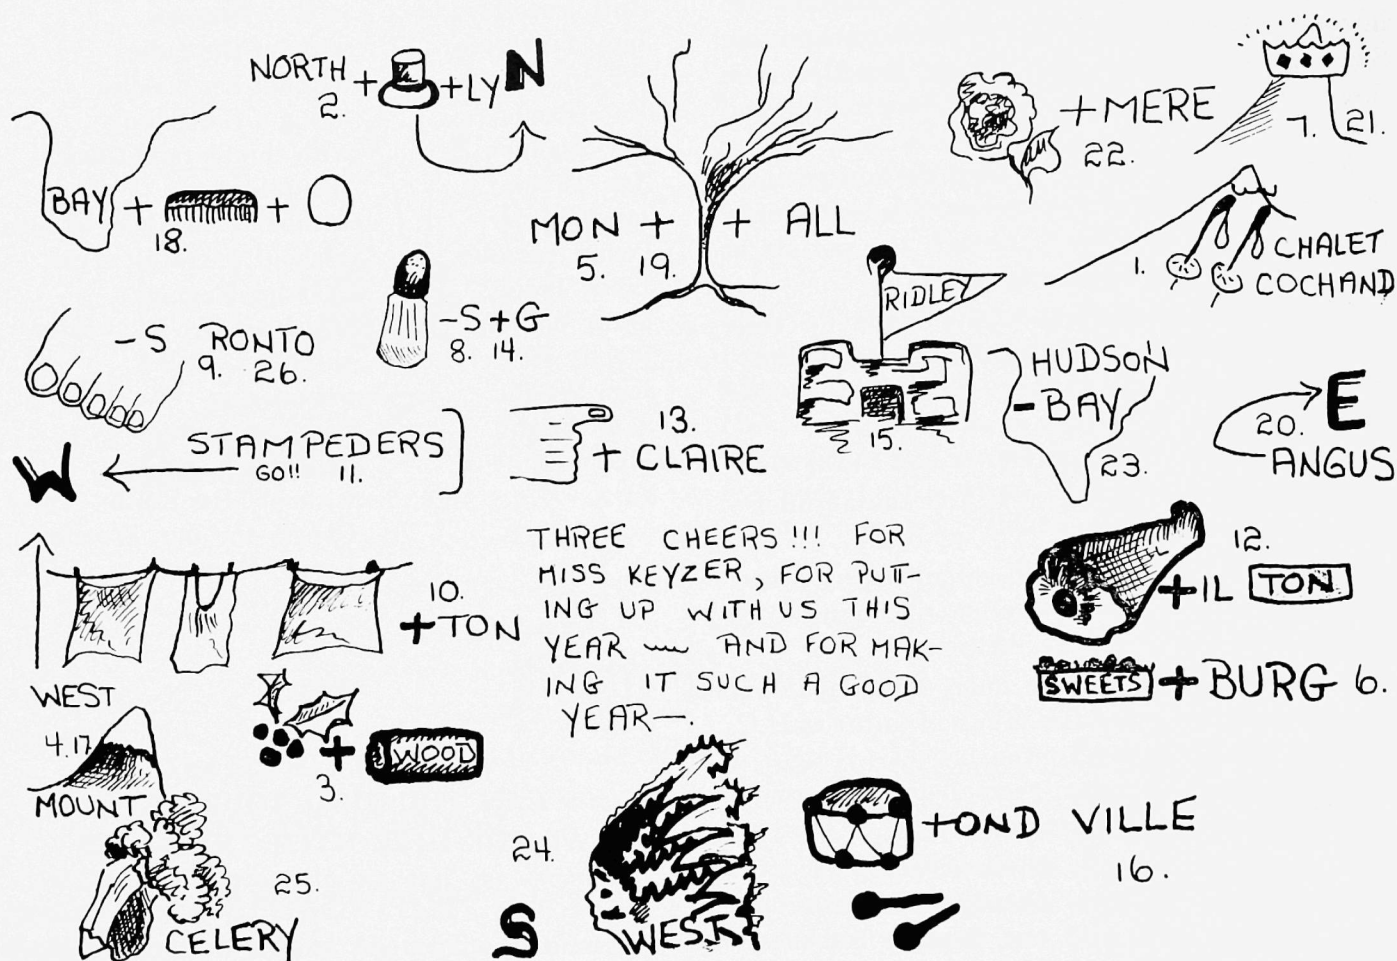 NORTH + + LY N
2.
+ MERE
22.
7. 21.
BAY + + O
18.
MON + + ALL
5. 19.
1. CHALET
COCHAND
RIDLEY
15.
-S + G
8. 14.
-S RONTO
9. 26.
HUDSON
-BAY
23.
E
20.
ANGUS
STAMPEDERS
GO!! 11.
W
13.
+ CLAIRE
10.
+TON
THREE CHEERS!!! FOR
MISS KEYZER, FOR PUTT-
ING UP WITH US THIS
YEAR ~ AND FOR MAK-
ING IT SUCH A GOOD
YEAR—.
12.
+IL TON
SWEETS + BURG 6.
WEST
4.17
MOUNT
+ WOOD
3.
25.
CELERY
24.
S
WEST
+OND VILLE
16.